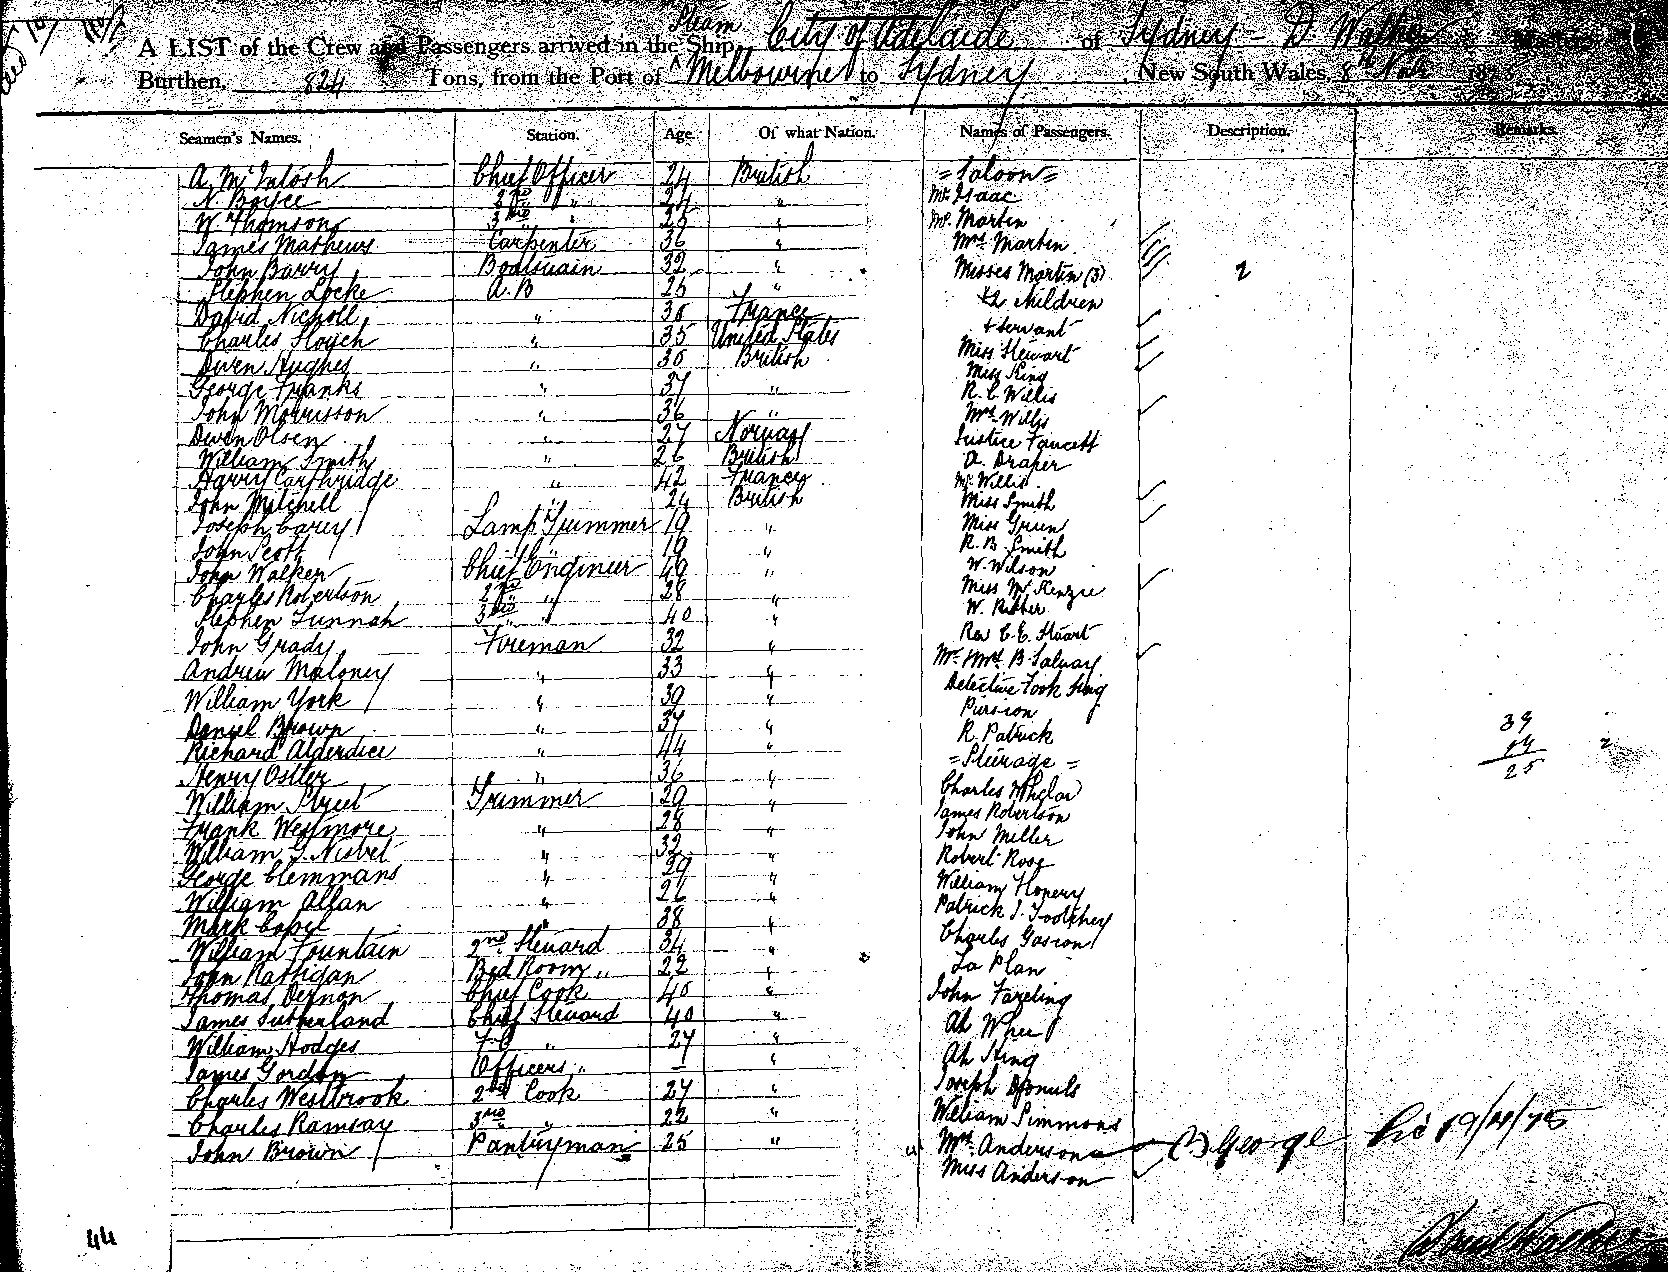 Steam
A LIST of the Crew and Passengers arrived in the Ship City of Adelaide of Sydney - D Walker Master,
Burthen, 824 Tons, from the Port of Melbourne to Sydney, New South Wales, 8th Novr 187
Seamen's Names. Station. Age. Of what Nation. Names of Passengers. Description. Remarks.
A McIntosh Chief Officer 24 British = Saloon =
N. Boyce 2nd " 24 " Mr Isaac
W. Thomson 3rd " 25 " Mr. Martin
James Mathews Carpenter 36 " Mrs Martin
John Barry Boatswain 32 " Misses Martin (3) 2
Stephen Locke A.B 25 " + 2 children
David Nicholl " 30 France + servant
Charles " 35 United States Miss Stewart
Owen Hughes " 30 British Miss King
George Franks " 37 " R. C Willis
John Morrisson " 36 " Mrs Willis
Owen Olsen " 27 Norway Justice Faucett
William Smith " 26 British A. Draper
Harry Carthridge " 42 France Mr Willis
John Mitchell " 24 British Miss Smith
Joseph Carey Lamp Trimmer 19 " Miss Green
John Scott " 19 " R. B. Smith
John Walker Chief Engineer 49 " W. Wilson
Charles Robertson 2nd " 28 " Miss McKenzie
Stephen Tunnah 3rd " 40 " W. Ritter
John Grady Fireman 32 " Rev C. E. Stuart
Andrew Maloney " 33 " Mr & Mrs B. Salway
William York " 39 " Detective Fook Sing
Daniel Brown " 37 " 39
Richard Alderdice " 44 " R. Patrick 14
Henry Ostler " 36 " = Steerage = 25
William Street Trimmer 29 " Charles
Frank Westmore " 28 " James Robertson
William G. Nisbet " 32 " John Miller
George Clemmans " 29 " Robert Rose
William Allan " 26 " William
Mark Capel " 38 " Patrick J.
William Fountain 2nd Steward 34 " Charles
John Rattigan Bed Room " 22 " La Plan
Thomas Dernan Chief Cook 40 " John
James Sutherland Chief Steward 40 " Ah Whee
William Hodges F C " 27 " Ah Hing
James Gordon Officers " — " Joseph
Charles Westbrook 2nd Cook 27 " William Simmons
Charles Ramsay 3rd " 22 " Mrs Anderson George
John Brown Pantryman 25 " Miss Anderson
44